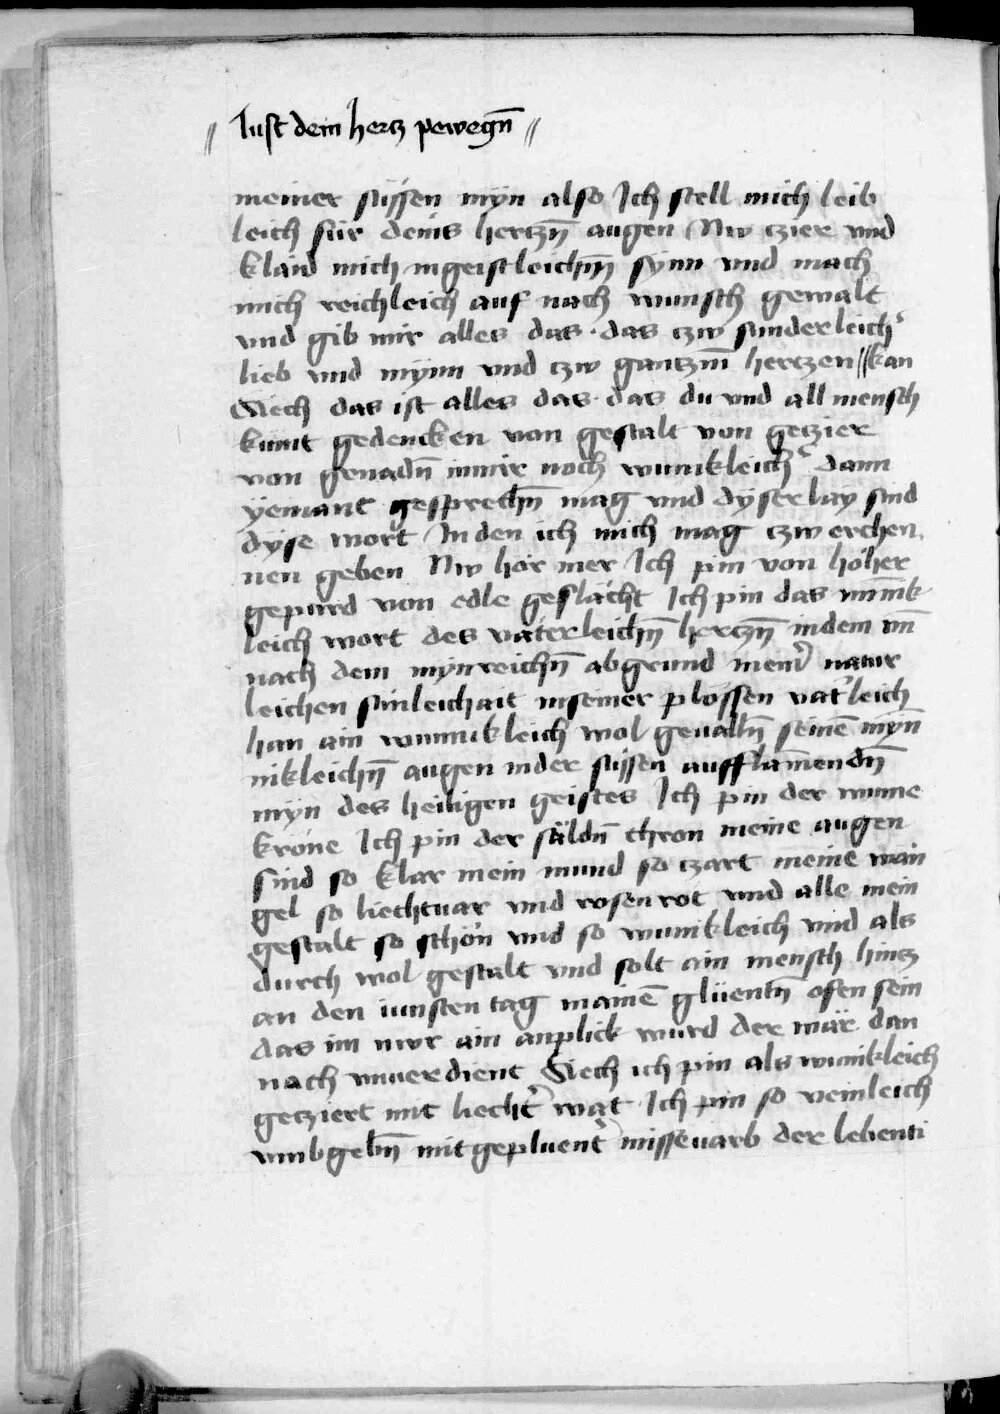 〃 lust dem hertz pewegn̄ 〃
meiner süssen mÿn also Ich stell mich leib
leich für deins hertzn̄ augen Nw czier vnd
klaid mich ingeistleichn̄ synn vnd mach
mich reichleich auf nach wunsch gewalt
vnd gib mir alles das · das czw sunderleich͛
lieb vnd mÿnn vnd czw gantzm̄ hertzen〃kan
Siech das ist alles das · das du vnd all mensch
kunt gedencken von gestalt von geczier
von genadn̄ immir noch wunikleich͛ dann
ÿemant gesprechn̄ mag vnd dÿserlay sind
dÿse wort In den ich mich mag czw erchen
nen geben Nw hör mer Ich pin von höher
gepurd von edle geslächt Ich pin das win̄ik
leich wort des väterleichn̄ hertzn̄ indem vn̄
nach dem mÿnreichn̄ abgrund mein͛ natur
leichen sunleichait inseiner plössen vat͛leich
han ain wunnikleich wol geualln̄ seinē mÿn̄
nikleichn̄ augen inder süssen aufflam̄endn̄
mÿn des heiligen geistes Ich pin der wunne
kröne Ich pin der säldn̄ thron meine augen
sind so klar mein mund so czart meine wän
gel so liechtuar vnd rosenrot vnd alle mein
gestalt so schön vnd so wunikleich vnd als
durch wol gestalt vnd solt ain mensch hincz
an den iunsten tag inainē glüentn̄ ofen sein
das im nwr ain anplick wurd der wär dan
nach vnuerdient Siech ich pin als wunikleich
gecziert mit liecht͛ wat Ich pin so veinleich
vmbgebn̄ mit gepluent͛ misseuarb der lebenti